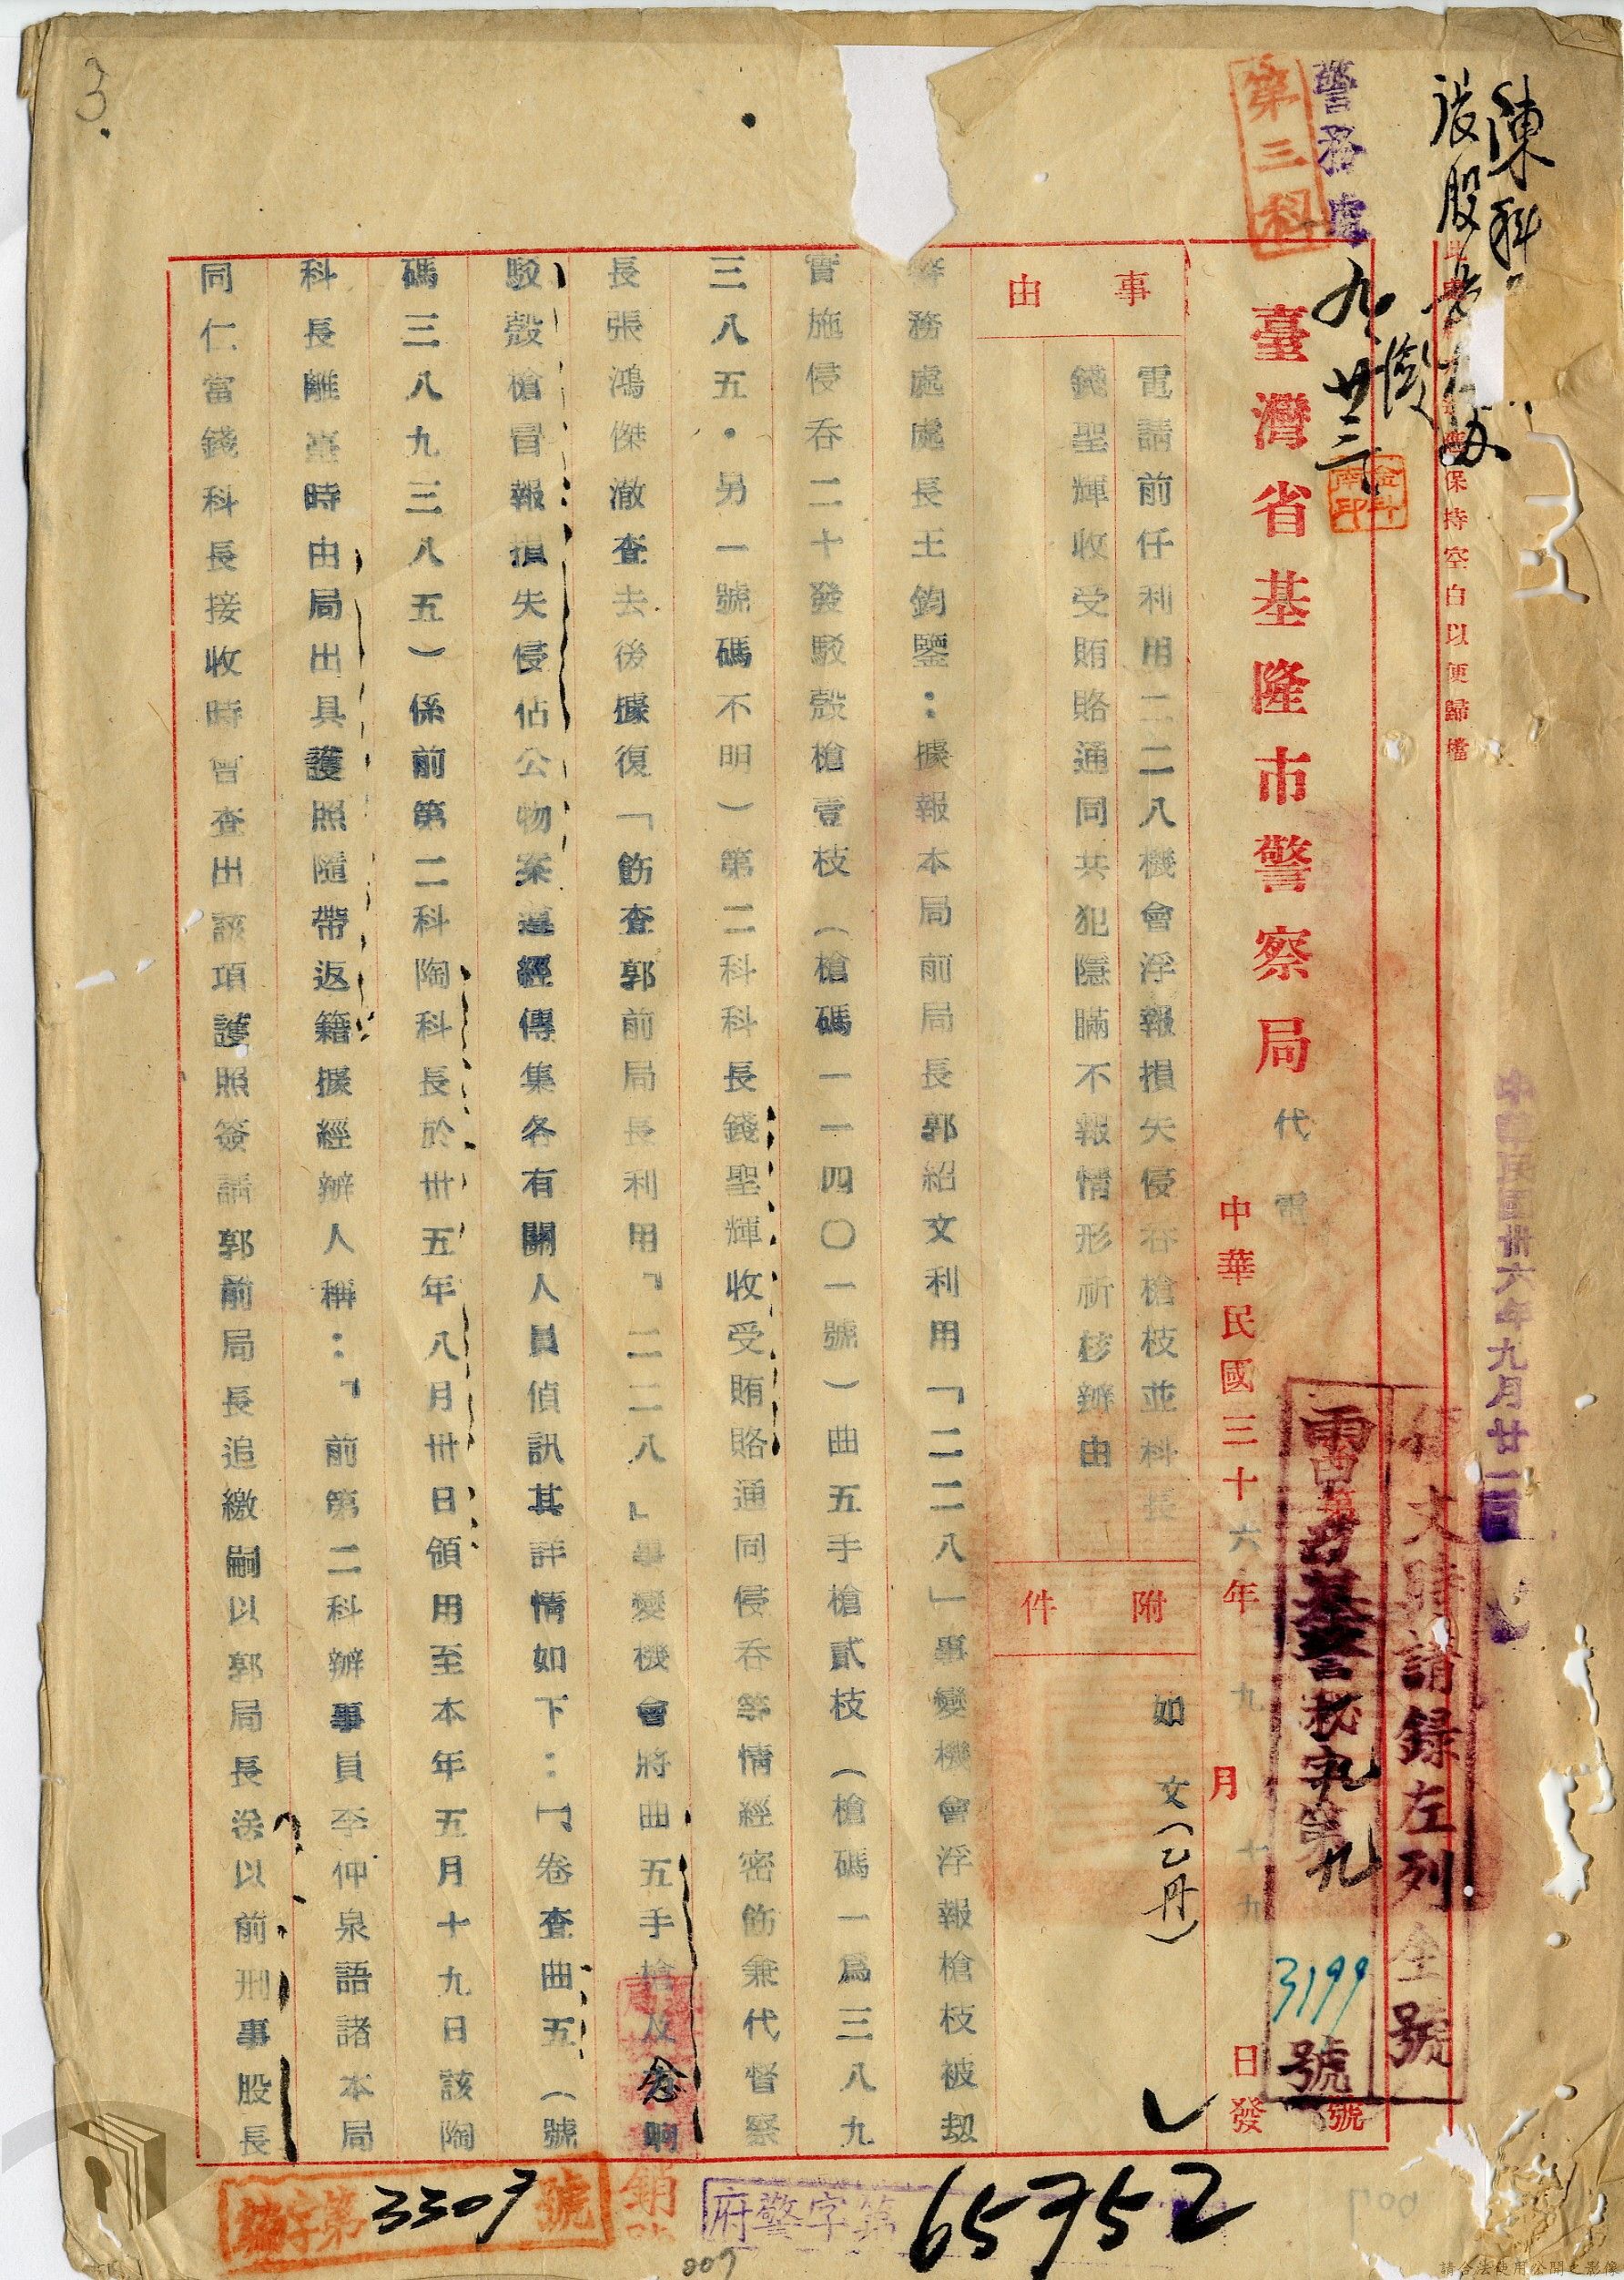 陳科
中華民國卅六年九月廿二
保持空白以便歸檔
復文時請錄左列全號
警務處
九 廿三
第三科
臺灣省基隆市警察局 代電
基警秘 第 3199 號
中華民國三十六年九月十九日發
事由
電請前任利用二二八機會浮報損失侵吞槍枝並科長
錢聖輝收受賄賂通同共犯隱瞞不報情形祈核辦由
附件
如文(乙册)
務處處長王鈞鑒：據報本局前局長郭紹文利用「二二八」事變機會浮報槍枝被劫
實施侵吞二十發駁殼槍壹枝（槍碼一一四〇一號）曲五手槍貳枝（槍碼一為三八九
三八五．另一號碼不明）第二科科長錢聖輝收受賄賂通同侵吞等情經密飭兼代督察
長張鴻傑澈查去後據復「飭查郭前局長利用『二二八』事變機會將曲五手槍及念响
駁殼槍冒報損失侵佔公物案遵經傳集各有關人員偵訊其詳情如下：㈠卷查曲五（號
碼三八九三八五）係前第二科陶科長於卅五年八月卅日領用至本年五月十九日該陶
科長離臺時由局出具護照隨帶返籍據經辦人稱：『前第二科辦事員李仲泉語諸本局
同仁當錢科長接收時曾查出該項護照簽請郭前局長追繳嗣以郭局長塗以前刑事股長
字第3307號
銷
府警字第65752
3.
009
請合法使用公開之影像